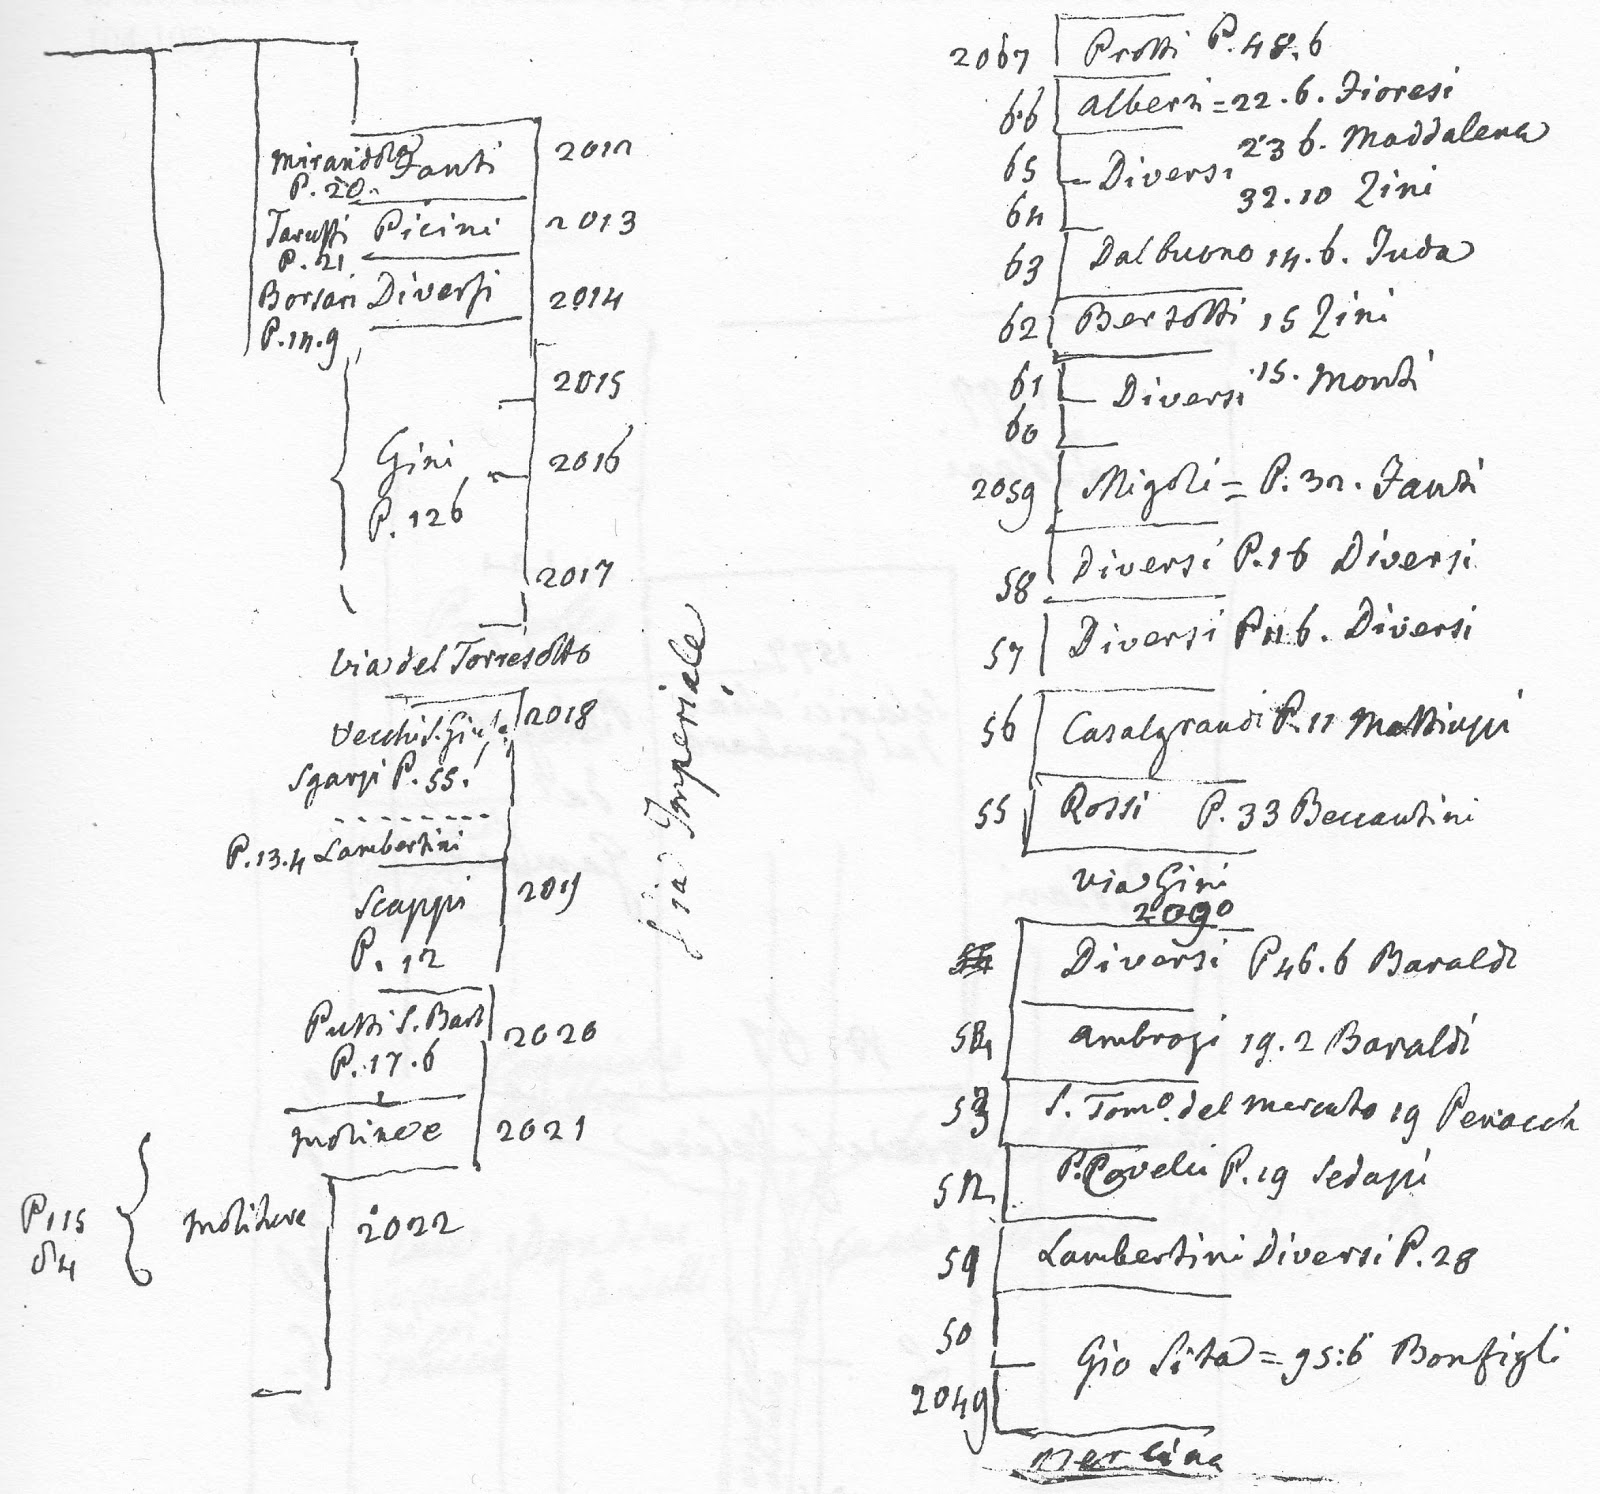 Mirandola Fanti 2012
P. 20.
Taruffi Picini 2013
P. 21
Borsari Diversi 2014
P. 14.9
2015
Gini 2016
P. 126
2017
Via del Torresotto
Vecchi S. 2018
Sgarzi P. 55.
P. 13.4 Lambertini
Scappi 2019
P. 12
Putti S. Bart 2020
P. 17.6
molinee 2021
P 115
molinare 2022
Via Imperiale
2067 Protti P. 48.6
66 Alberi = 22.6. Fioresi
65 Diversi 23 6. Maddalena
64 32.10 Zini
63 Dal buono 14.6. Fuda
62 Bertotti 15 Zini
61 Diversi 15. Monti
60
2059 Migoli = P. 32. Fanti
58 Diversi P. 16 Diversi
57 Diversi P 116. Diversi
56 Casalgrandi P. 11
55 Rossi P. 33 Beccantini
Via Gini
2090
Diversi P 46.6 Baraldi
54 Ambrosi 19.2 Baraldi
53 S. Tomo. del mercato 19
52 P. 19
51 Lambertini Diversi P. 28
50 Gio Sita = 95:6 Bonfigli
2049